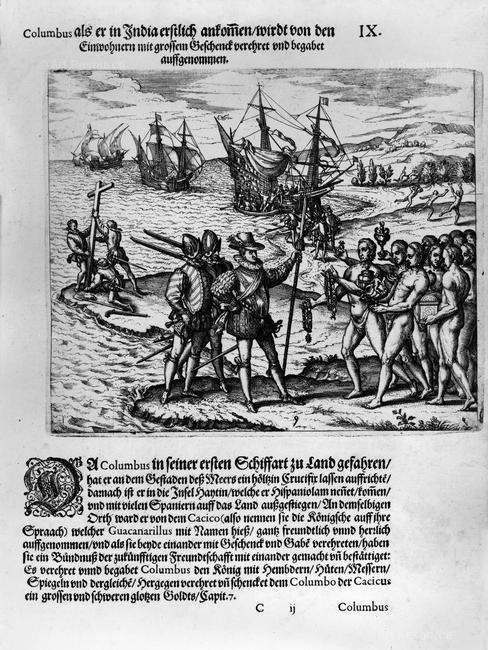 Columbus als er in India erstlich ankom̄en/wirdt von den IX.
Einwohnern mit grossem Geschenck verehret vnd begabet
auffgenommen.
9
DA Columbus in seiner ersten Schiffart zu Land gefahren/
hat er an dem Gestaden deß Meers ein höltzin Crucifix lassen auffrichtē/
darnach ist er in die Insel Haytin/welche er Hispaniolam neñet/kom̄en/
vnd mit vielen Spaniern auff das Land außgestiegen/An demselbigen
Orth ward er von dem Cacico (also nennen sie die Königsche auff ihre
Spraach) welcher Guacanarillus mit Namen hieß/ gantz freundtlich vnnd herrlich
auffgenommen/vnd als sie beyde einander mit Geschenck vnd Gabē verehreten/haben
sie ein Bündnuß der zukünfftigen Freundtschafft mit einander gemacht vñ bestättiget:
Es verehret vnnd begabet Columbus den König mit Hembdern/Hüten/Messern/
Spiegeln vnd dergleichē/Hergegen verehret vñ schencket dem Columbo der Cacicus
ein grossen vnd schweren glotzen Goldts/Capit.7.
C ij Columbus